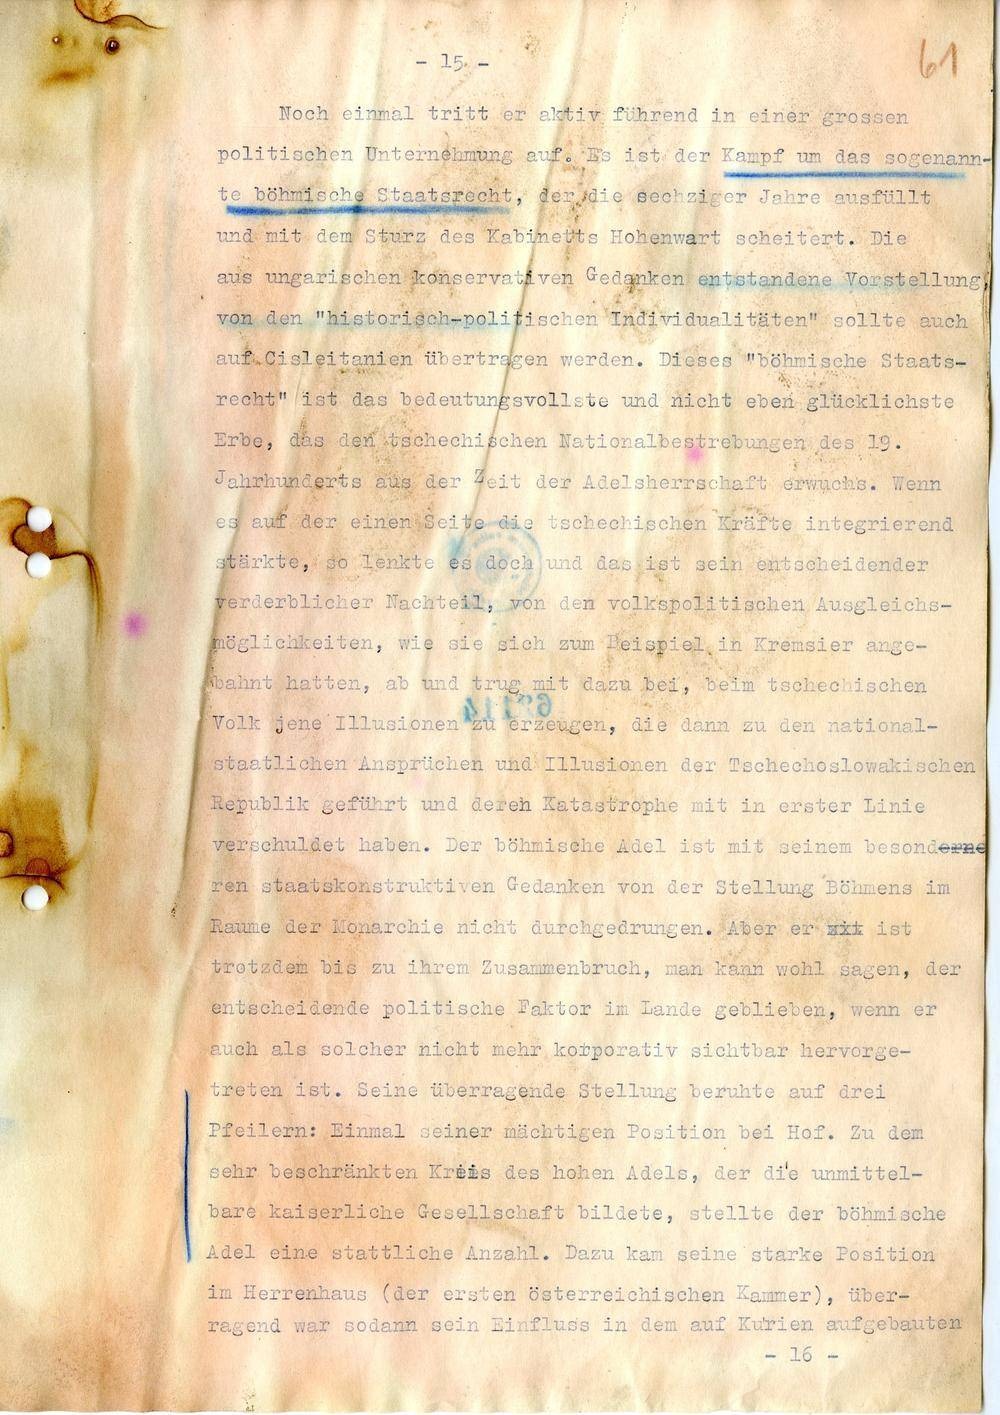 - 15 -
61
Noch einmal tritt er aktiv führend in einer grossen
politischen Unternehmung auf. Es ist der Kampf um das sogenann-
te böhmische Staatsrecht, der die sechziger Jahre ausfüllt
und mit dem Sturz des Kabinetts Hohenwart scheitert. Die
aus ungarischen konservativen Gedanken entstandene Vorstellung,
von den "historisch-politischen Individualitäten" sollte auch
auf Cisleitanien übertragen werden. Dieses "böhmische Staats-
recht" ist das bedeutungsvollste und nicht eben glücklichste
Erbe, das den tschechischen Nationalbestrebungen des 19.
Jahrhunderts aus der Zeit der Adelsherrschaft erwuchs. Wenn
es auf der einen Seite die tschechischen Kräfte integrierend
stärkte, so lenkte es doch und das ist sein entscheidender
verderblicher Nachteil, von den volkspolitischen Ausgleichs-
möglichkeiten, wie sie sich zum Beispiel in Kremsier ange-
bahnt hatten, ab und trug mit dazu bei, beim tschechischen
Volk jene Illusionen zu erzeugen, die dann zu den national-
staatlichen Ansprüchen und Illusionen der Tschechoslowakischen
Republik geführt und deren Katastrophe mit in erster Linie
verschuldet haben. Der böhmische Adel ist mit seinem besonderne
ren staatskonstruktiven Gedanken von der Stellung Böhmens im
Raume der Monarchie nicht durchgedrungen. Aber er xit ist
trotzdem bis zu ihrem Zusammenbruch, man kann wohl sagen, der
entscheidende politische Faktor im Lande geblieben, wenn er
auch als solcher nicht mehr korporativ sichtbar hervorge-
treten ist. Seine überragende Stellung beruhte auf drei
Pfeilern: Einmal seiner mächtigen Position bei Hof. Zu dem
sehr beschränkten Kreis des hohen Adels, der die unmittel-
bare kaiserliche Gesellschaft bildete, stellte der böhmische
Adel eine stattliche Anzahl. Dazu kam seine starke Position
im Herrenhaus (der ersten österreichischen Kammer), über-
ragend war sodann sein Einfluss in dem auf Kurien aufgebauten
- 16 -